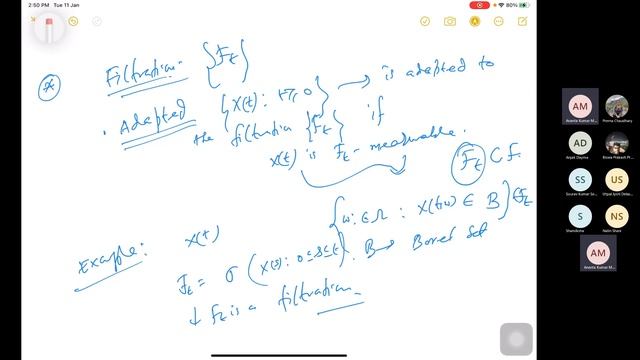 2:50 PM Tue 11 Jan
80%
Filtration {F_t}
Adapted {X(t): t ≥ 0} → is adapted to
the filtration {F_t} if
X(t) is F_t - measurable.
F_t ⊂ F.
{ω ∈ Ω : X(t,ω) ∈ B} ∈ F_t
B → Borel Set
Example: X(t)
F_t = σ(X(s): 0≤s≤t).
↓ F_t is a filtration
AM
Ananta Kumar M...
Prerna Chaudhary
AD
Anjali Dayma
Biswa Prakash P...
SS
Sourav Kumar Sa...
US
Utpal Jyoti Deba...
S
Shanolisha
NS
Nalin Shani
AM
Ananta Kumar M...